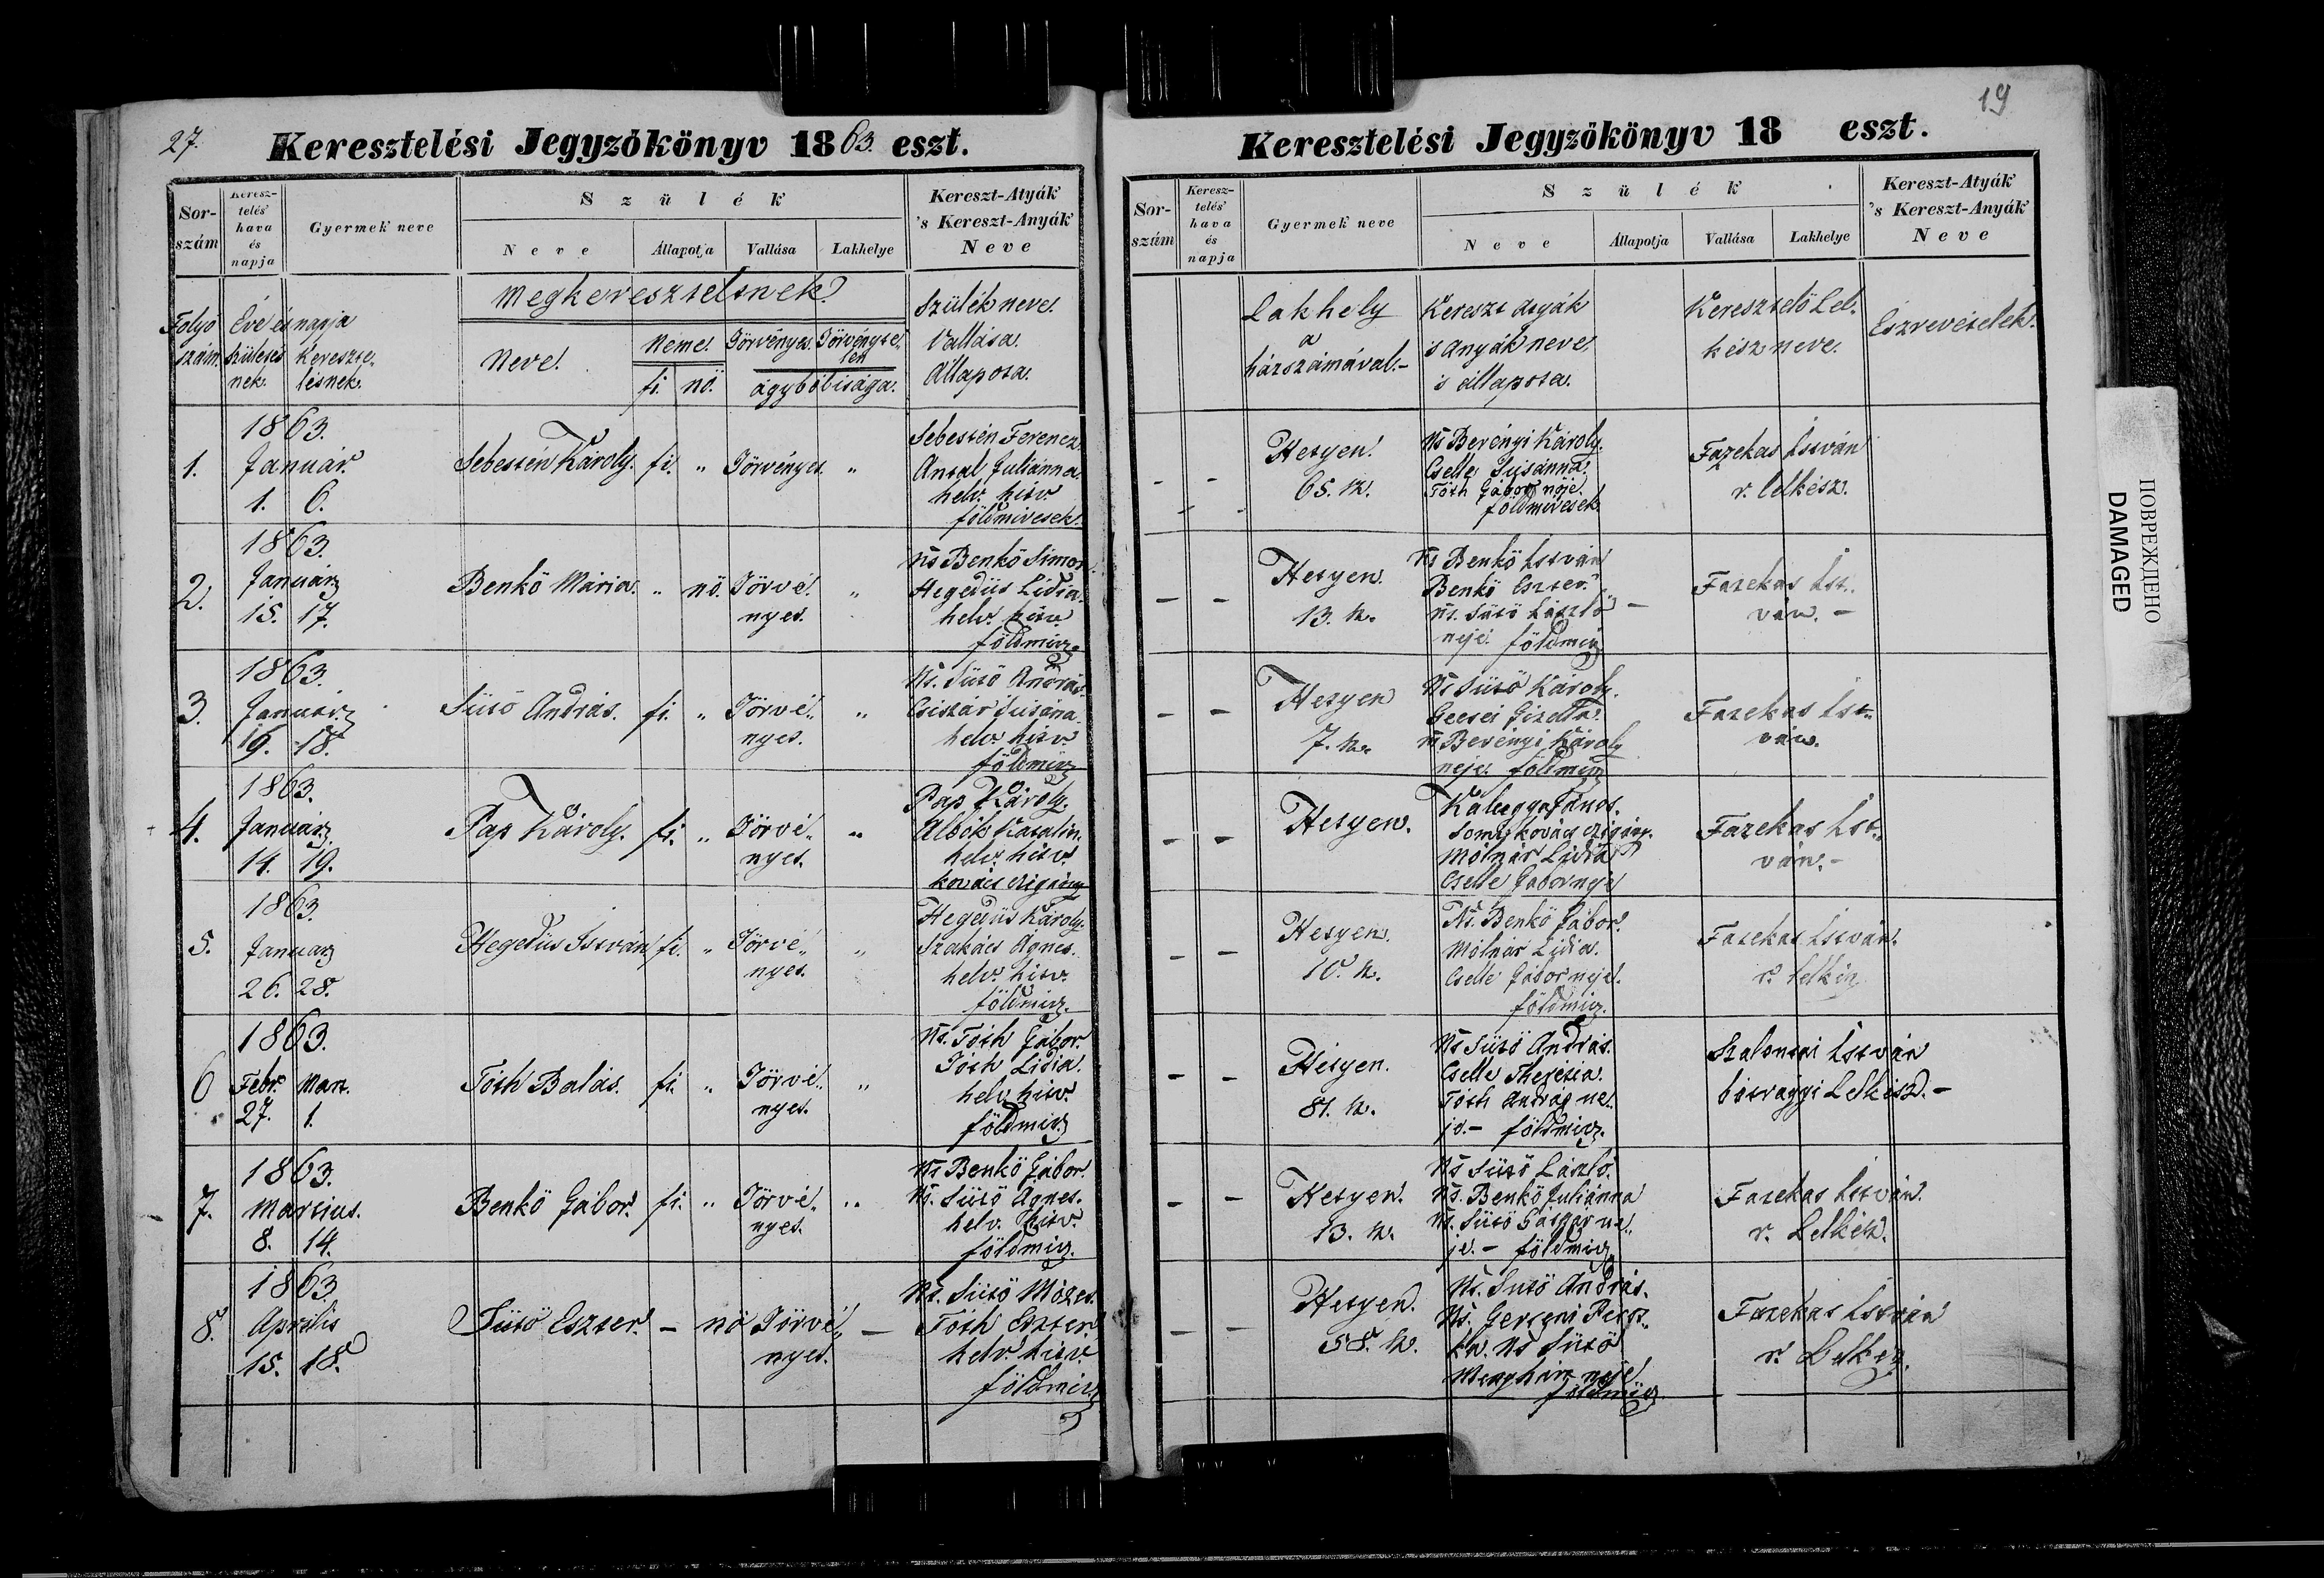 27.
Keresztelési Jegyzőkönyv 1863. eszt.
Sor-szám
Keresz-telés' hava és napja
Gyermek neve
Szülék
Neve
Állapotja
Vallása
Lakhelye
Kereszt-Atyák 's Kereszt-Anyák Neve
Folyó szám.
Éve és napja
születés nek.
kereszte„ lésnek.
Megkereszteltnek
Neve.
Neme.
fi.
nő.
Törvényes.
Törvényte„ len
ágybóliságа.
Szülék neve.
Vallása.
Állapota.
1.
1863.
Január
1. 6.
Sebestén Károly. fi. „ Törvényes. „
Sebestén Ferencz.
Antal Juliánna.
helv. hitv
földmivesek.
2.
1863.
Január
15. 17.
Benkő Mária. „ nő. Törvé„
nyes. „
Ns Benkő Simon.
Hegedüs Lidia.
helv. hitv.
földmiv.
3.
1863.
Január
18.
Sütő András. fi. „ Törvé„
nyes. „
Ns. Sütő András.
Csiszár Susána.
helv. hitv.
földmiv
4.
1863.
Január
14. 19.
Pap Károly. fi. „ Törvé„
nyes. „
Pap Károly.
Albók Katalin.
helv. hitv.
kovács czigány
5.
1863.
Január
26. 28.
Hegedüs István fi. „ Törvé„
nyes. „
Hegedüs Károly.
Szakács Ágnes.
helv. hitv.
földmiv.
6
1863.
Febr. Mar.
27. 1.
Tóth Balás. fi. „ Törvé„
nyes. „
Ns. Tóth Gábor.
Tóth Lidia.
helv. hitv.
földmiv
7.
1863.
Martius.
8. 14.
Benkő Gábor. fi. „ Törvé„
nyes. „
Ns Benkő Gábor.
Ns. Sütő Ágnes.
helv. hitv.
földmiv.
8.
1863
Április
15. 18.
Sütő Eszter. – nő Törvé„
nyes. –
Ns. Sütő Mózes.
Tóth Eszter
helv. hitv.
földmiv
19
Keresztelési Jegyzőkönyv 18 eszt.
Sor-szám
Keresz-telés' hava és napja
Gyermek neve
Szülék
Neve
Állapotja
Vallása
Lakhelye
Kereszt-Atyák 's Kereszt-Anyák Neve
Lakhely
a
házszámával.–
Kereszt atyák
s anyák neve,
s állapota.
Keresztelő Lel„
kész neve.
Észrevételek.
Hetyen.
65. sz.
Ns Berényi Károly.
Cselle Susánna.
Tóth Gábor neje.
földmivesek.
Fazekas István
r. lelkész.
Hetyen.
13. sz.
Ns Benkő István
Benkő Eszter.
Ns. Sütő László
neje. földmiv
Fazekas Ist„
ván. –
Hetyen
7. sz.
Ns Sütő Károly.
Gecsei Gizella.
Ns Berényi Károly
neje. földmiv
Fazekas Ist„
ván.
Hetyen.
János.
kovács czigány.
Molnár Lidia
Cselle Gábor neje
Fazekas Ist„
ván. –
Hetyen.
10. sz.
Ns. Benkő Gábor.
Molnár Lidia.
Cselle Gábor neje.
földmiv.
Fazekas István.
r. lelkész
Hetyen.
81. sz.
Ns Sütő András.
Cselle Therésia.
Tóth András ne„
je. – földmiv.
István
Lelkész. –
Hetyen.
13. sz.
Ns Sütő László.
Ns. Benkő Juliánna
Ns. Sütő Gáspár ne„
je. – földmiv
Fazekas István.
r. Lelkész.
Hetyen.
58. sz.
Ns. Sütő András.
Ns.
Ns Sütő
Menyhár neje
földmiv
Fazekas István
r. Lelkész.
ПОВРЕЖДЕНО
DAMAGED